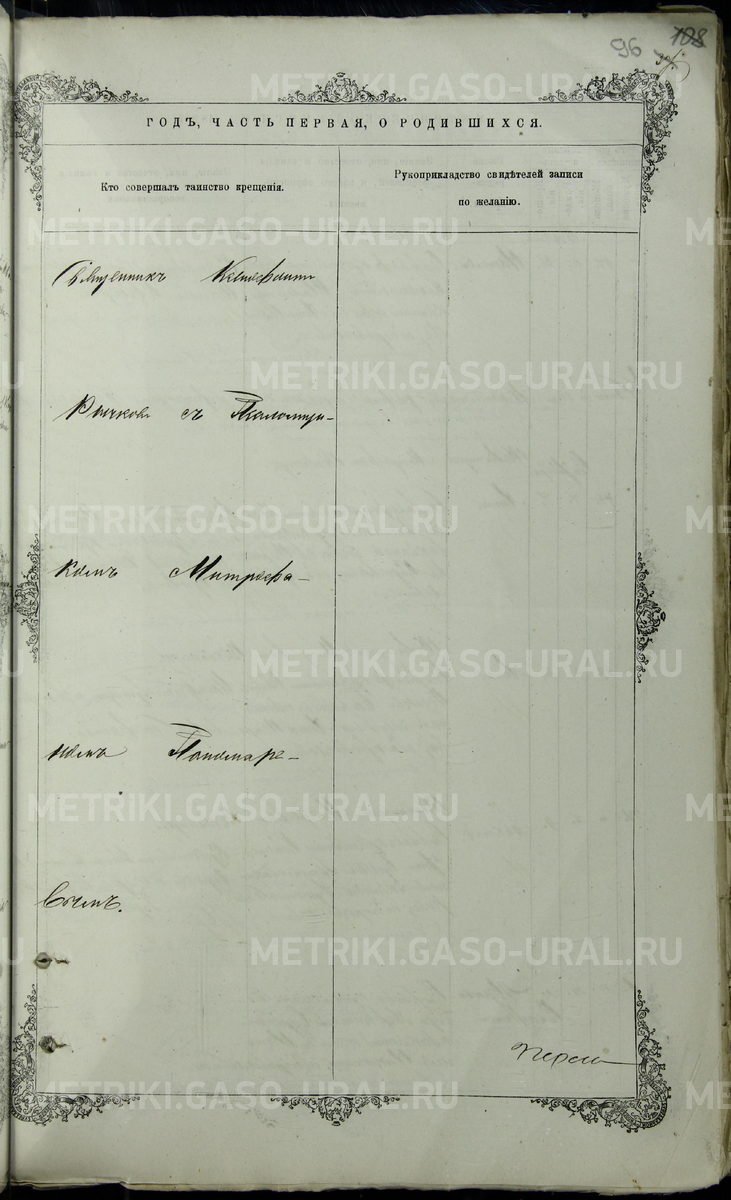 96 108
ГОДЪ, ЧАСТЬ ПЕРВАЯ, О РОДИВШИХСЯ.
Кто совершалъ таинство крещенія.
Рукоприкладство свидѣтелей записи
по желанію.
Священникъ Ксенофонтъ
Рычковъ съ Псаломщи-
комъ Митрофа-
номъ Пономаре-
вымъ.
METRIKI.GASO-URAL.RU